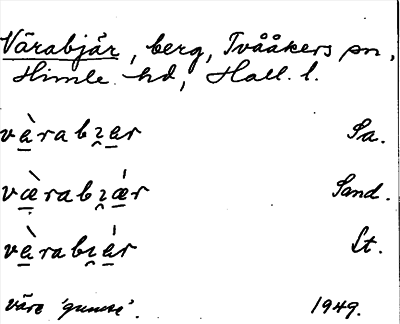 Värabjär, berg, Tvååkers sn,
Himle hd, Hall. l.
và̱rabɿ̯a̱r Sa.
væ̱̀rabɿ̯ǽ̱r Sand.
và̱rabɿ̯á̱r St.
väre 'gumse'. 1949.